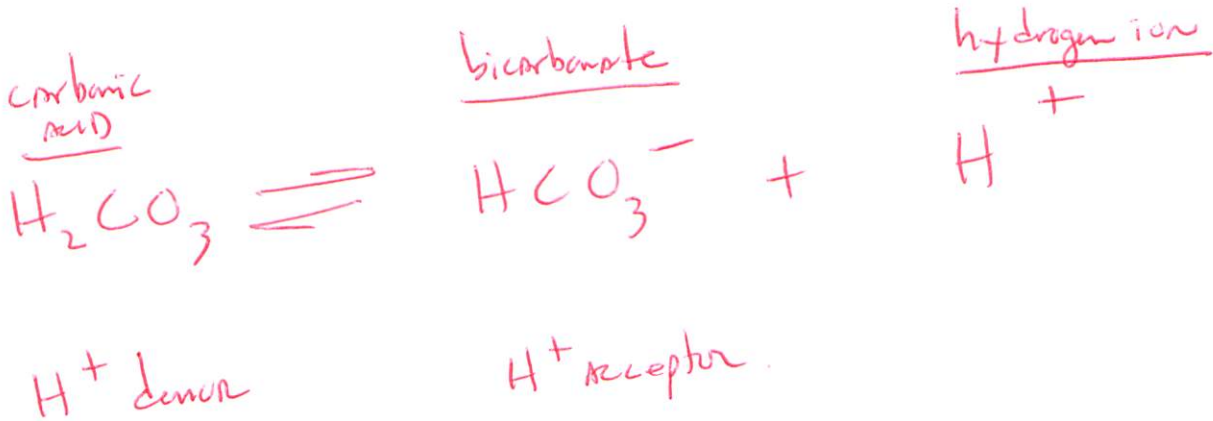 carbonic
acid
bicarbonate
hydrogen ion
H₂CO₃ ⇌ HCO₃⁻ + H⁺
H⁺ donor
H⁺ acceptor.